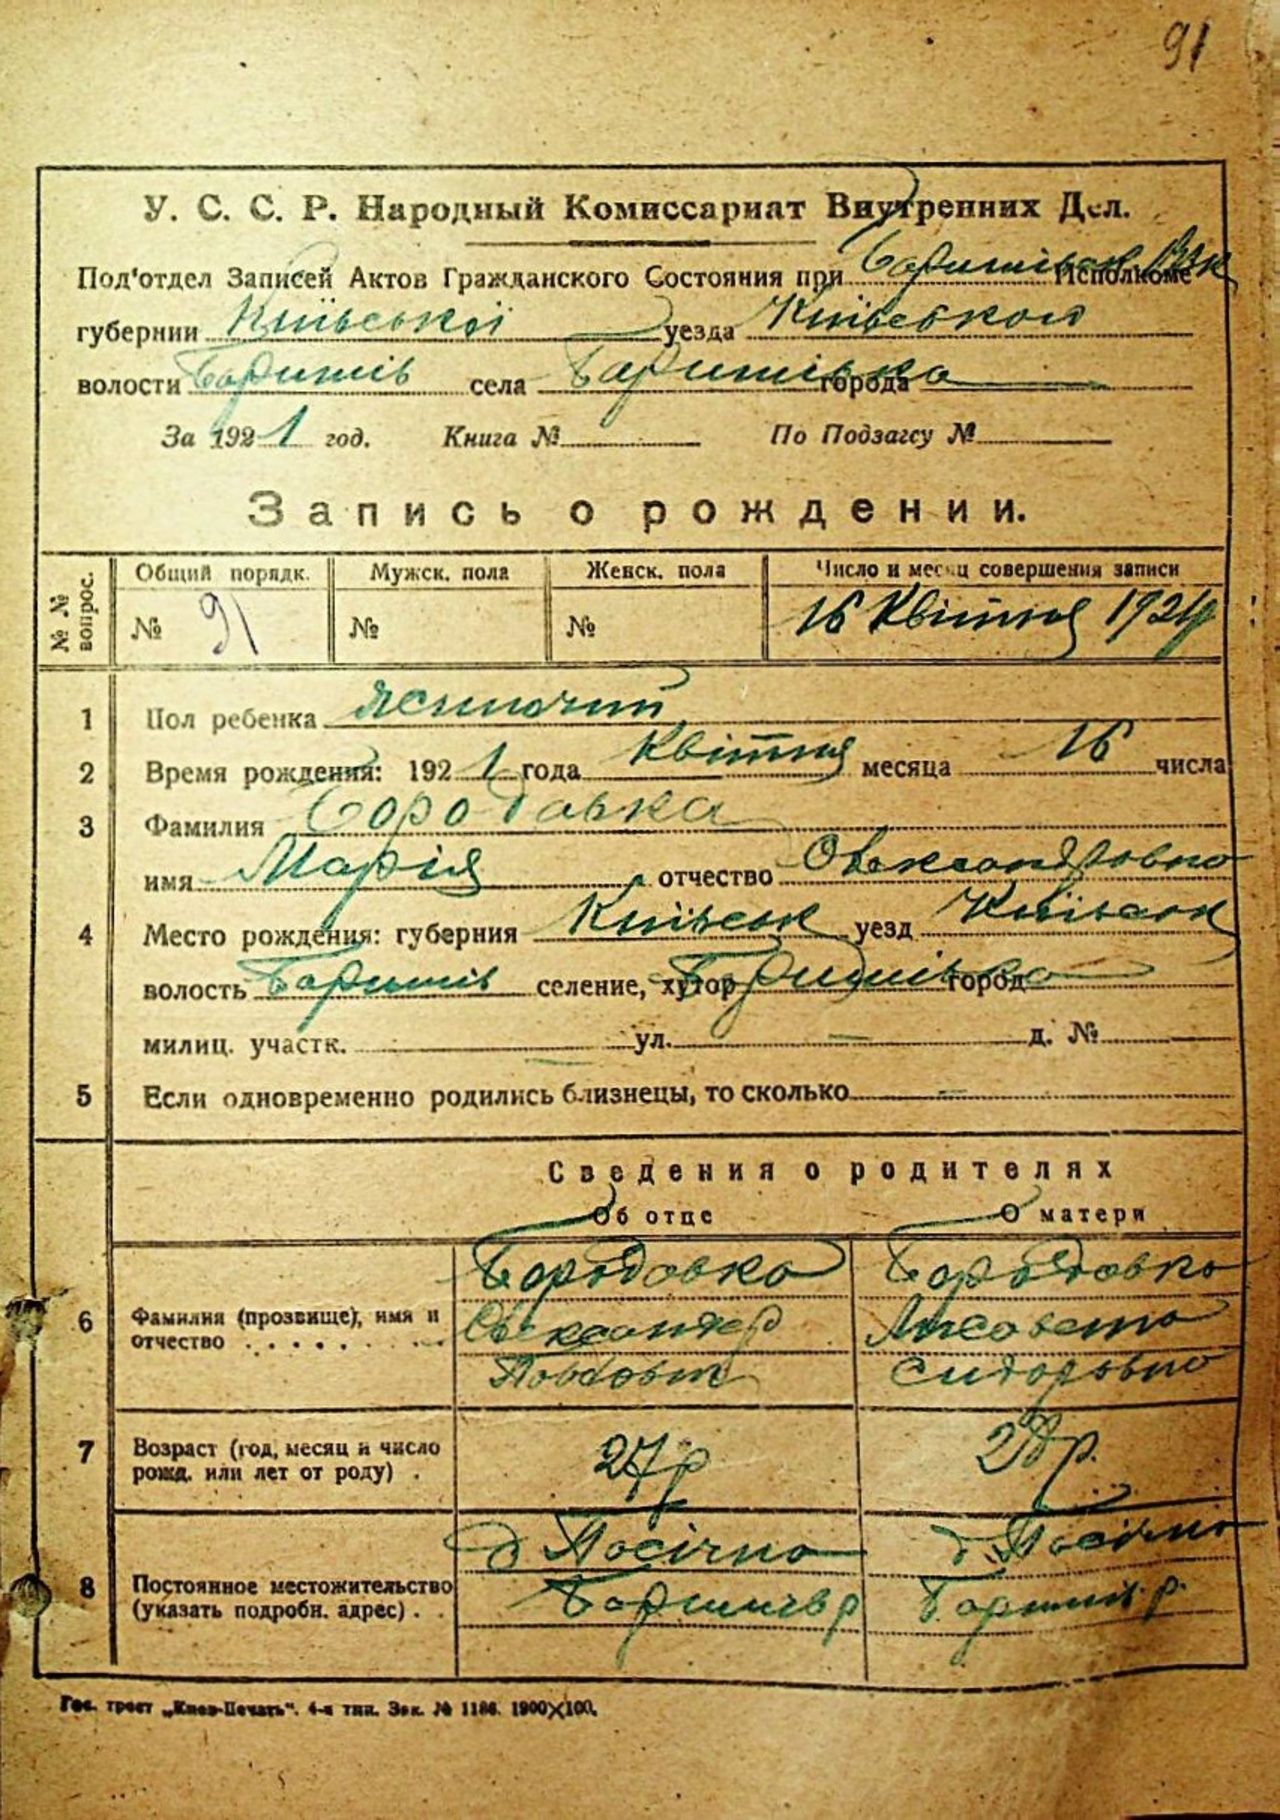 91
У. С. С. Р. Народный Комиссариат Внутренних Дел.
Под'отдел Записей Актов Гражданского Состояния при Баришівськ. Исполкоме
губернии Київської уезда Київського
волости Баришів села Баришівка города
За 1921 год. Книга № По Подзагсу №
Запись о рождении.
№ № вопрос. Общий порядк. Мужск. пола Женск. пола Число и месяц совершения записи
№ 91 № № 16 Квітня 192
1 Пол ребенка жіночий
2 Время рождения: 1921 года Квітня месяца 16 числа
3 Фамилия Бородавка
имя Марія отчество Олександровна
4 Место рождения: губерния Київськ уезд Київськ
волость Баришів селение, хутор Баришівка город
милиц. участк. — ул. — д. №
5 Если одновременно родились близнецы, то сколько —
Сведения о родителях
Об отце О матери
6 Фамилия (прозвище), имя и Бородавка Бородавка
отчество . . . . . . . . Олександр Лисавета
Сидоровна
7 Возраст (год, месяц и число рожд. или лет от роду) . 27 р 28 р.
8 Постоянное местожительство (указать подробн. адрес) . . д Пасічна д Пасічна
Баришів р Баришів. р.
Гос. трест „Киев-Печать". 4-я тип. Зак. № 1186. 1900×100.